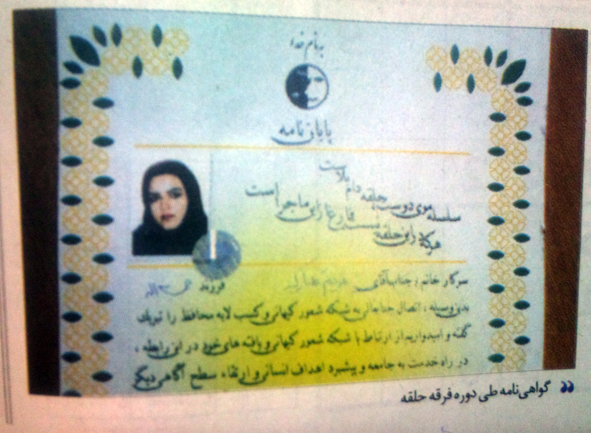 بنام خدا
پایان نامه
سلسله موی دوست حلقه دام بلاست
هرکه در این حلقه نیست فارغ از این ماجراست
سرکار خانم / جناب آقای
فرزند
بدینوسیله ، اتصال جنابعالی به شبکه شعور کیهانی و کسب لایه محافظ را تبریک
گفته و امیدواریم از ارتباط با شبکه شعور کیهانی و یافته های خود در این رابطه ،
در راه خدمت به جامعه و پیشبرد اهداف انسانی و ارتقاء سطح آگاهی دیگر
گواهی‌نامه طی دوره فرقه حلقه